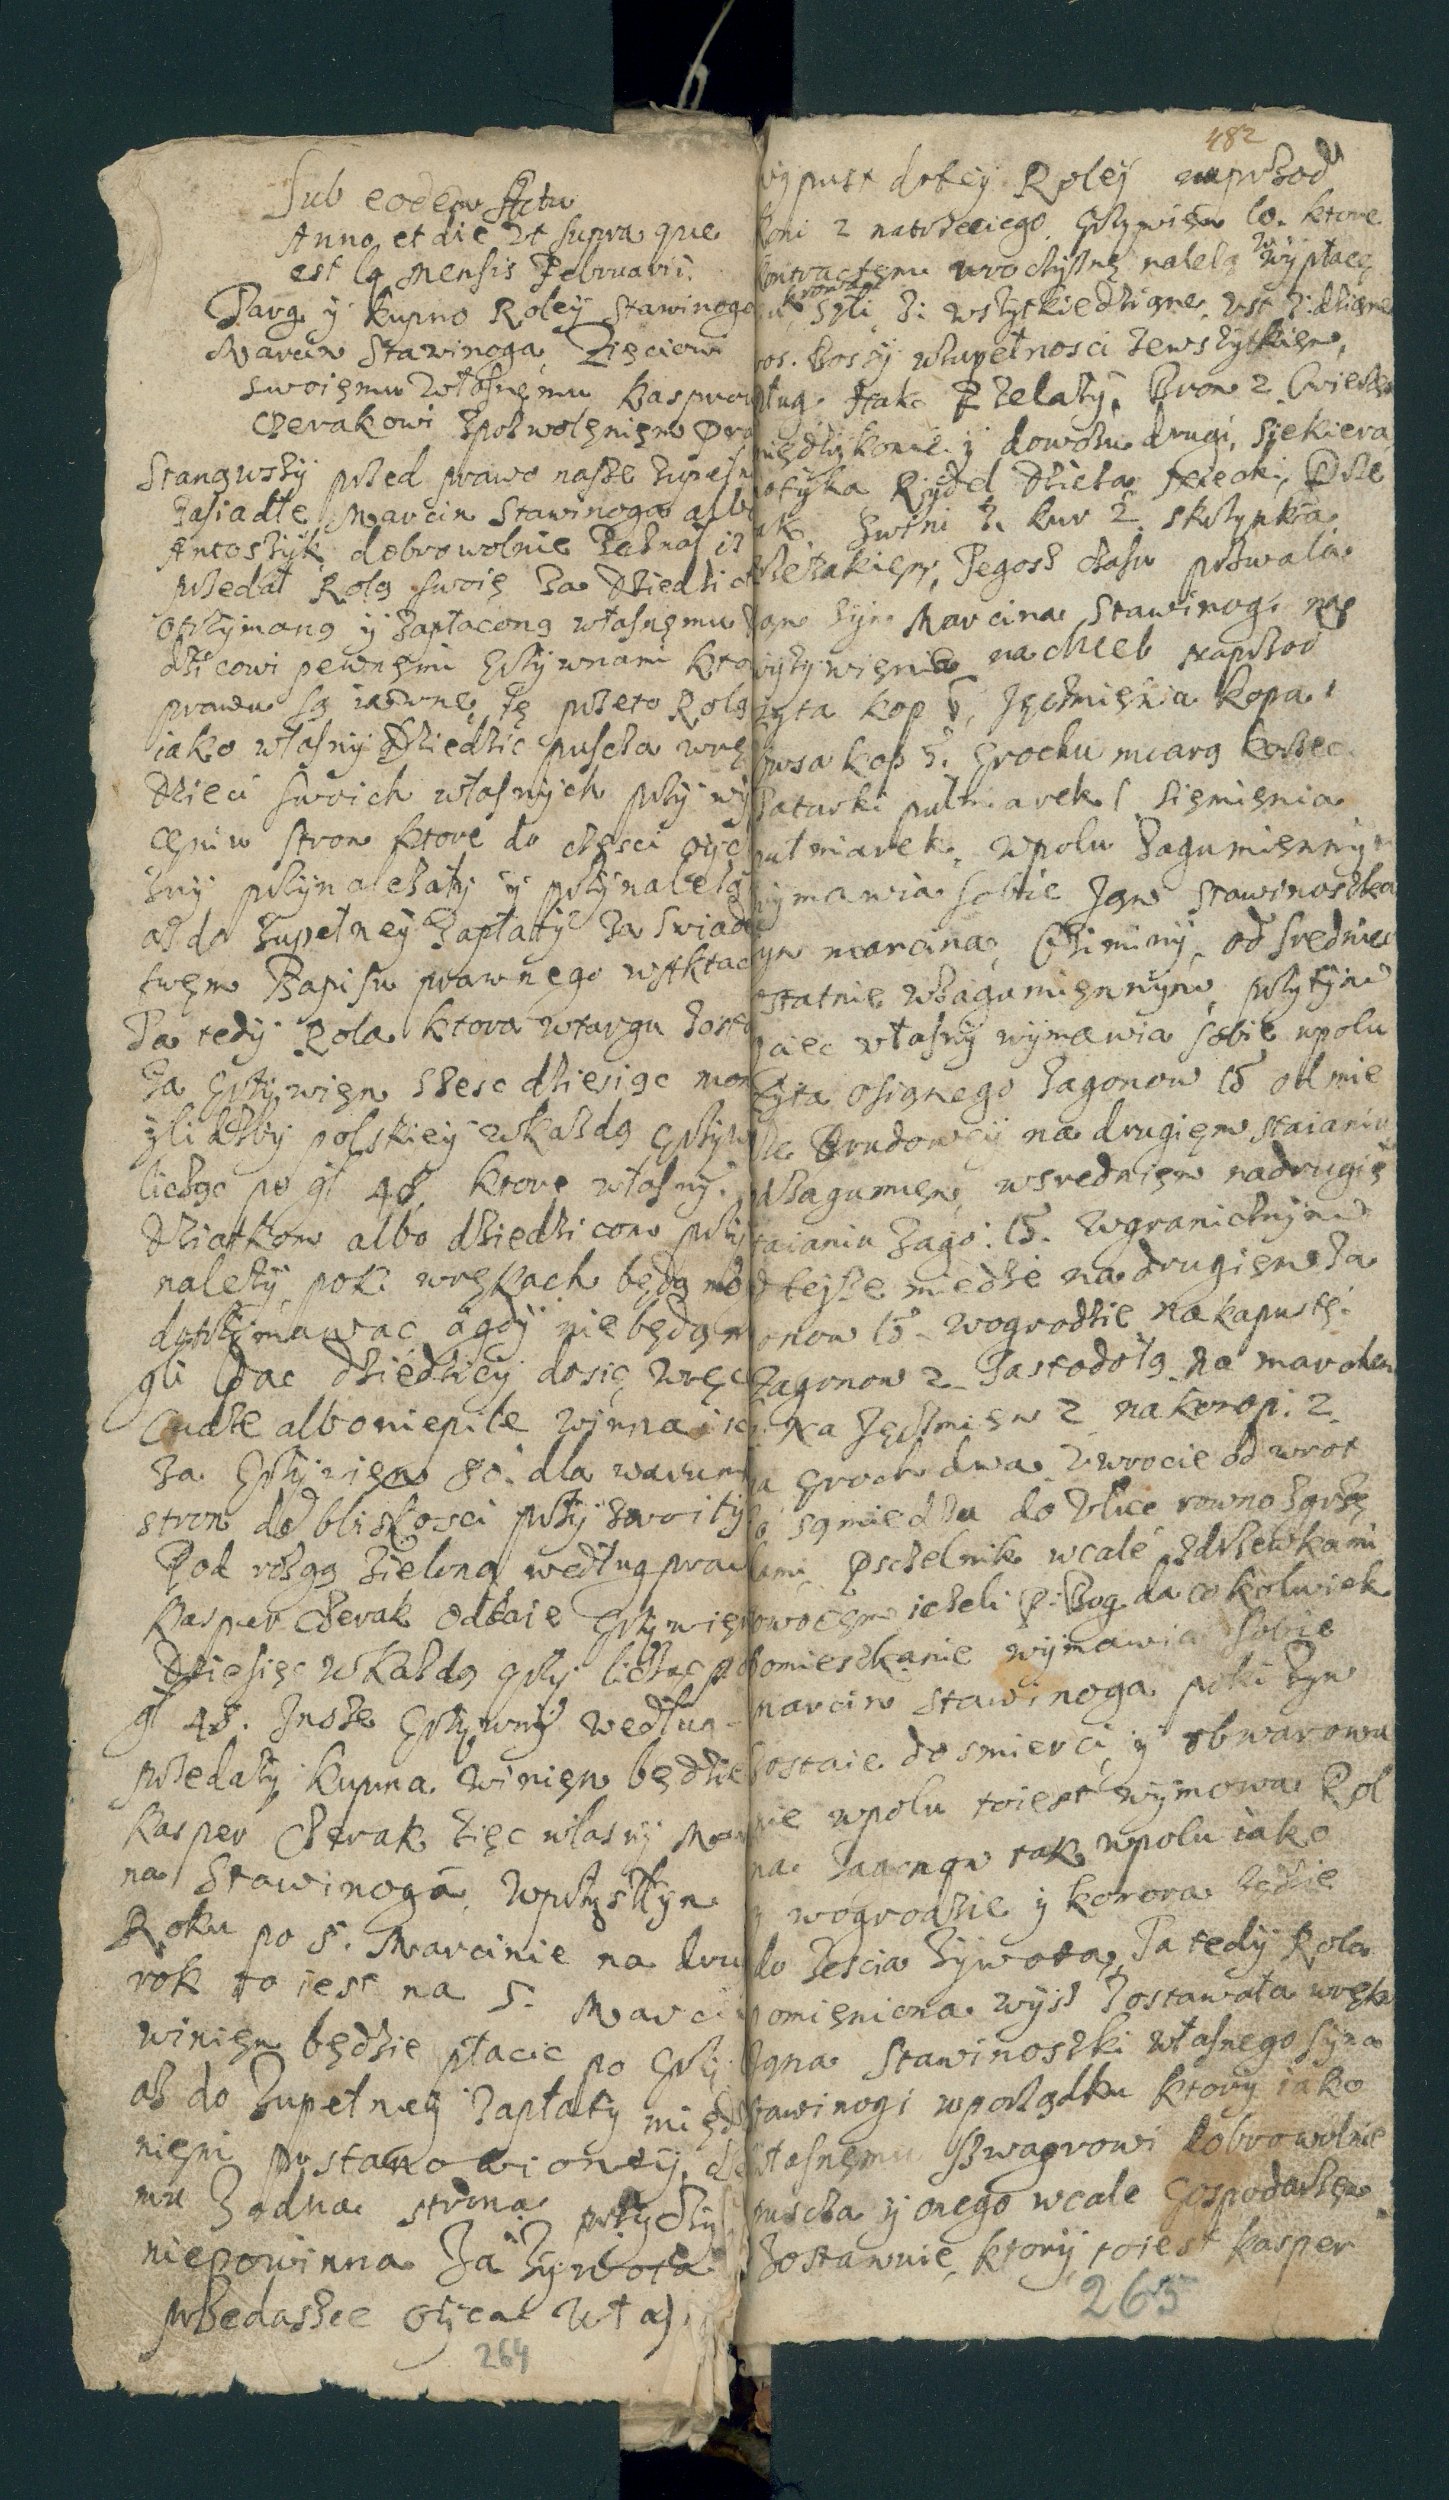 Sub eodem Actu
Anno et die ut supra que
est la Mensis Februarii.
Targ y kupno Roley Stawinoga
Marcin Stawinoga Zięciowi
swoięmu własnęmu Kasprow
Czerakowi zpozwolęnięm Pra
Stanąwszy przed prawo nasze zupełn
Zasiadłe Marcin Stawinoga albo
Antoszyk dobrowolnie zeznał iz
przedał Rolą swoię za Dziedzict
otrzymaną y zapłaconą własnęmu
dzicowi pewnęmi grzywnami kto
prawu są iawnę, tę przeto Rolą
iako własny Dziedzic puscza wrę
Dzieci swoich własnych przy wy
cęniu stron ktore do częsci oyc
zny przynalezały y przynalezą
az do zupełney zapłaty za swiade
twęm Zapisu prawnego wAktac
Ta tedy Rola ktora wtargu zosta
za grzywięn szesc dziesiąc mon
y liczby polskiey wkazdą grzyw
licząc po gr 48. ktore własny
Dziatkom albo dziedzicom przy
nalezy pok. wrękach będą mo
dotrzymawac agdy niebędą m
gli dac dziedzicy dosię wręc
Cudze alboniepite winna isc
za grzywięn 80. dla warunk
stron do bliskosci przyzwoity
Pod rozgą zieloną według praw
Kasper Czerak oddaie grzywięn
Dziesięc wkazdą grzy licząc po
gr 48. Insze grzywny według
przedazy kupna winięn będzie
Kasper Czerak zięc własny Mar
na Stawinoga wprzyszłym
Roku po S. Marcinie na dru
rok to iest na S. Marci
winięn będzie płacic po grzy
az do zupełney zapłaty międ
nięmi postanowioney
mu zadna strona przydzy
niepowinna Za zywota
przedaszce oyca wła
264
482
wypust dotey Roley naprzod
koni 2 natrzeciego grzywięn 10. ktore
kontractęmu uroczystę nalezą wypłacę
krowami
szli 3. wszytkiedziane
wos. Bosy wzupełnosci zewszytkięm,
pług. zelazy, Bron 2
y dowozu drugi, siekiera
motyka Rydel
ak. Swini 3. kur 2. skrzynka
Tegosz czasu przwala
Jan Syn Marcina Stawinogi na
wyzywięnie na chleb naprzod
zyta kop 5, Jęczmięnia kopa 1
owsa kop 3. grochu miarą korzec
Tatarki pułmiarek 1 Sięmięnia
pułmiarek, wpolu zagumięnnym
wymawia sobie Jan Stawinoszka
syn marcina, Oziminy, od srednies
ostatnie wzagumięnnym, przytym
oiec własny wymawia sobie wpolu
zyta osianego zagonow 15 odmie
dze Brudowey na drugięm staianiu
wzagumięn, wsrednięm nadrugię
staianiu zago: 15. wgranicznym
od teysze miedze na drugięm za
gonow 15 wogrodzie nakapustę
zagonow 2 Zastodołą na marchew
2 Na Jęczmięn 2 nakonop: 2.
na groch dwa wrocie od wrot
do sąmiedzu do ulice rowno zgrzę
dami Pszczelnik wcale zdrzewkami
owocęm iezeli P: Bog da cokolwiek
pomieszkanie wymawia sobie
marcin Stawinoga poki zyw
zostaie do smierci y obwarowu
nie wpolu toiest wymowa Rol
na zagonow tak wpolu iako
y wogrodzie y komora będzie
do Zescia zywota, Ta tedy Rola
pomięniona wysz zostawała wręku
Jana Stawinoszki własnego syna
Stawinogi wporządku ktory iako
własnęmu Szwagrowi dobrowolnie
puscza y onego wcale Gospodarzem
zostawuie, ktory toiest kasper
265